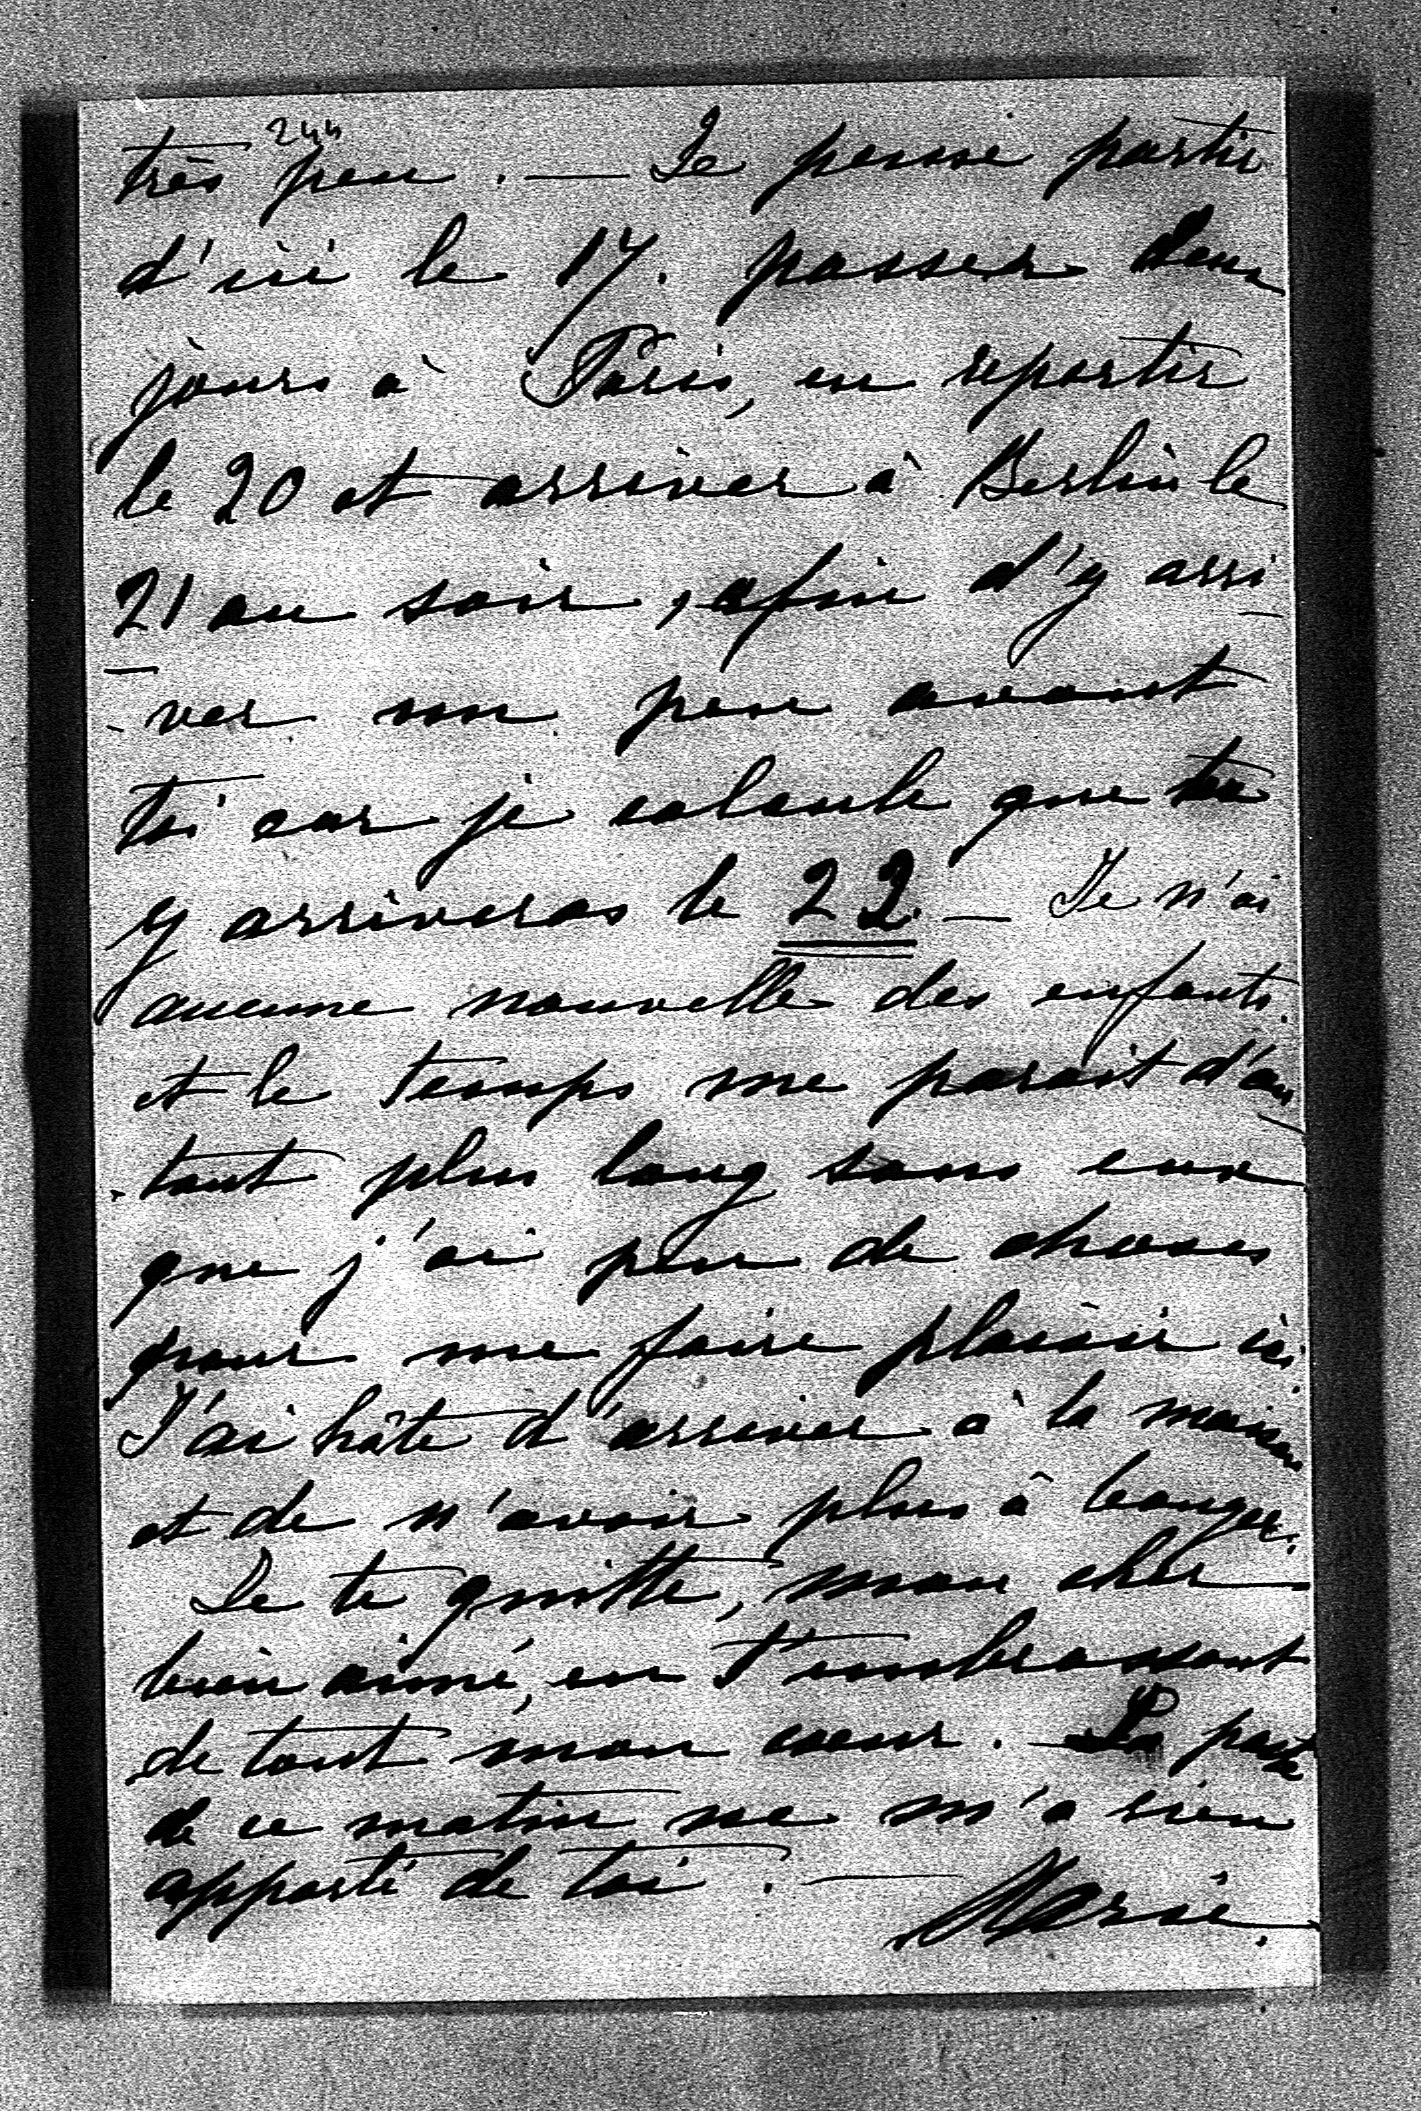 244
très peu. — Je pense partir
d'ici le 17. passer deux
jours à Paris, en repartir
le 20 et arriver à Berlin le
21 au soir, afin d'y arri
-ver un peu avant
toi car je calcule que tu
y arriveras le 22. — Je n'ai
aucune nouvelle des enfants.
et le temps me parait d'au
-tant plus long sans eux
que j'ai peu de choses
pour me faire plaisir ici.
J'ai hâte d'arriver à la maison
et de n'avoir plus à bouger.
Je te quitte, mon cher
bien aimé, en t'embrassant
de tout mon coeur. — La poste
de ce matin ne m'a rien
apporté de toi. — Marie.